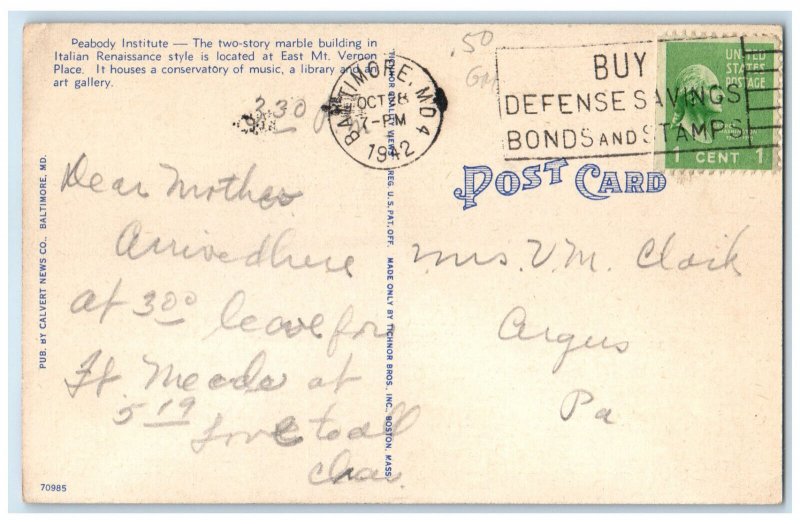 Peabody Institute — The two-story marble building in
Italian Renaissance style is located at East Mt. Vernon
Place. It houses a conservatory of music, a library and an
art gallery.
.50
BALTIMORE, MD 4
OCT 8
7-PM
1942
BUY
DEFENSE SAVINGS
BONDS AND STAMPS
UNITED
STATES
POSTAGE
WASHINGTON
1 CENT 1
POST CARD
3 30 PM
Dear Mother
Arrived here
at 3 00 leave for
Ft. Meade at
5 19
Love to all
Chas.
Mrs. V. M. Clark
Argus
Pa
PUB. BY CALVERT NEWS CO., BALTIMORE, MD.
TICHNOR QUALITY VIEWS REG. U. S. PAT. OFF. MADE ONLY BY TICHNOR BROS., INC., BOSTON, MASS.
70985